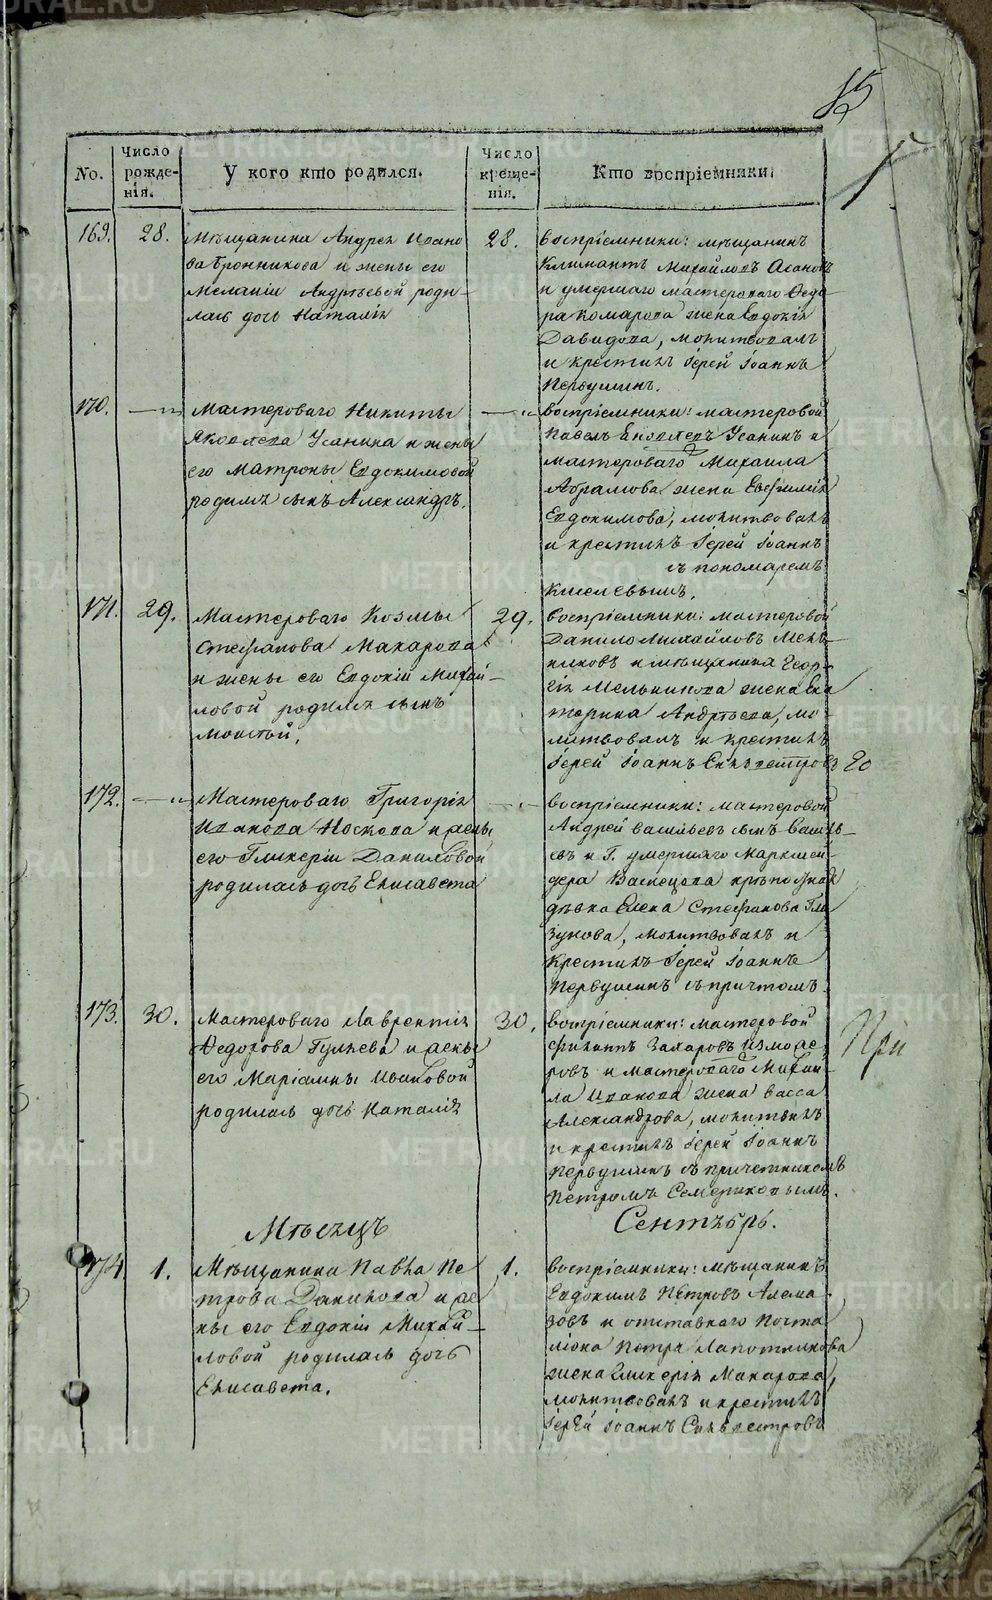 85
No.
Число рожде-нія.
У кого кто родился.
Число креще-нія.
Кто воспріемники.
169.
28.
Мѣщанина Андрея Ивано
ва Бронникова и жены его
Меланіи Андрѣевой роди-
лась дочь Наталія
28.
воспріемники: мѣщанинъ
Климантъ Михайловъ
и умершаго мастероваго Ѳедо
ра Комарова жена Евдокія
Давидова, молитвовалъ
и крестилъ Іерей Іоаннъ
Первушинъ.
170.
— „
Мастероваго Никиты
Яковлева Усанина и жены
его Матроны Евдокимовой
родился сынъ Александръ.
— „
воспріемники: мастеровой
Павелъ Яковлевъ Усанинъ и
мастероваго Михаила
Абрамова жена Евфимія
Евдокимова, молитвовалъ
и крестилъ Іерей Іоаннъ
съ пономаремъ
Киселевымъ.
171.
29.
Мастероваго Козмы
Стефанова Макарова
и жены его Евдокіи Михай-
ловой родился сынъ
Моисей.
29.
воспріемники: мастеровой
Данило Михайловъ Мель-
никовъ и мѣщанина Геор-
гія Мельникова жена Ека
терина Андрѣева, мо-
литвовалъ и крестилъ
Іерей Іоаннъ Сильвестровъ
172.
— „
Мастероваго Григорія
Иванова Носкова и жены
его Гликеріи Даниловой
родилась дочь Елисавета
— „
воспріемники: мастеровой
Андрей Васильевъ сынъ Василь-
евъ и Г. умершаго Маркшей-
дера крѣпостная
дѣвка Елена Стефанова Гла
зунова, молитвовалъ и
крестилъ Іерей Іоаннъ
Первушинъ съ причтомъ.
173.
30.
Мастероваго Лаврентія
Ѳедорова Гуляева и жены
его Маріамны Ивановой
родилась дочь Наталія
30.
воспріемники: мастеровой
Филипъ Захаровъ Измоде-
новъ и мастероваго Михаи-
ла Иванова жена Васса
Александрова, молитв.лъ
и крестилъ Іерей Іоаннъ
Первушинъ съ причетникомъ
Петромъ Семериковымъ.
При
Мѣсяцъ
Сентябрь.
174.
1.
Мѣщанина Павла Пе
трова Данилова и же
ны его Евдокіи Михай-
ловой родилась дочь
Елисавета.
1.
воспріемники: мѣщанинъ
Евдокимъ Петровъ Алема
зовъ и отставнаго Почта
ліона Петра Лапотникова
жена Гликерія Макарова,
молитвовалъ и крестилъ
Іерей Іоаннъ Сильвестровъ
METRIKI.GASO-URAL.RU